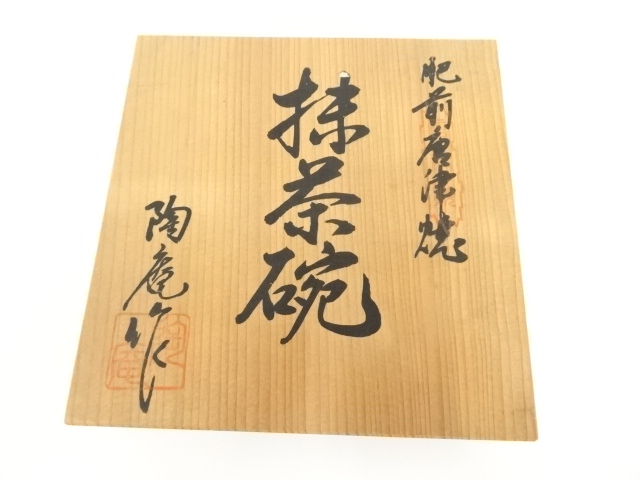 肥前唐津焼
抹茶碗
陶庵作